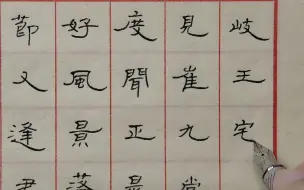 岐王宅
見崔九堂
度聞正是
好風景落
節又逢君